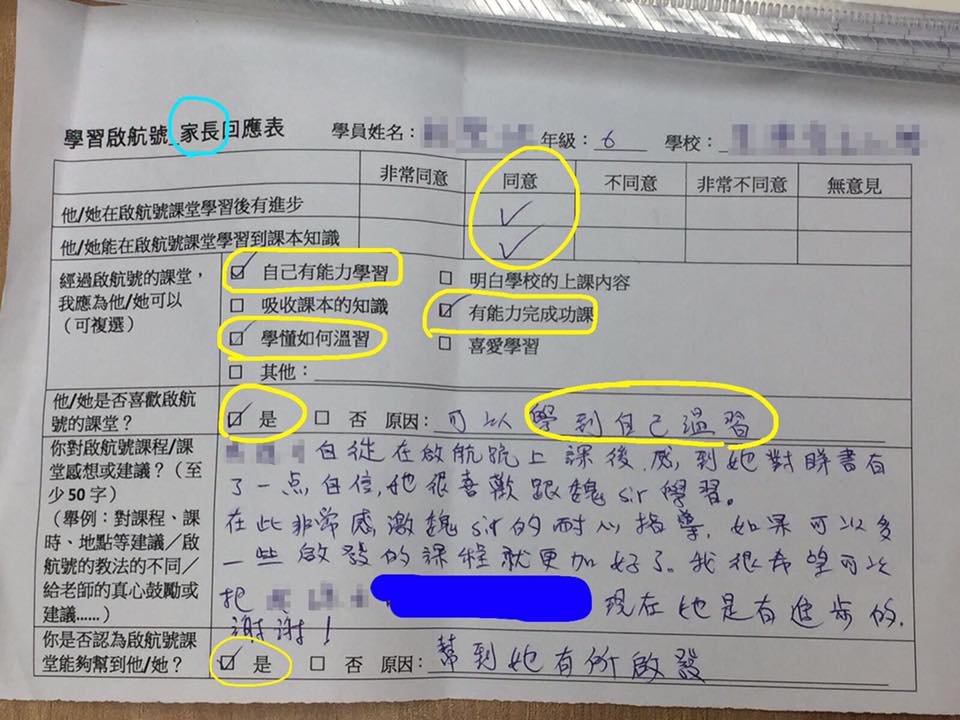 學習啟航號 家長回應表 學員姓名： 年級：6 學校：
非常同意 同意 不同意 非常不同意 無意見
他/她在啟航號課堂學習後有進步 ✓
他/她能在啟航號課堂學習到課本知識 ✓
經過啟航號的課堂，
我應為他/她可以
（可複選）
☑ 自己有能力學習 □ 明白學校的上課內容
□ 吸收課本的知識 ☑ 有能力完成功課
☑ 學懂如何溫習 □ 喜愛學習
□ 其他：
他/她是否喜歡啟航
號的課堂？
☑ 是 □ 否 原因：可以學到自己溫習
你對啟航號課程/課
堂感想或建議？（至
少 50 字）
（舉例：對課程、課
時、地點等建議／啟
航號的教法的不同／
給老師的真心鼓勵或
建議……）
自從在啟航號上課後，感到她對睇書有
了一点自信，她很喜歡跟魏sir學習。
在此非常感激魏sir的耐心指導，如果可以多
一些啟發的課程就更加好了。我很希望可以
把 現在她是有進步的.
謝謝！
你是否認為啟航號課
堂能夠幫到他/她？
☑ 是 □ 否 原因：幫到她有所啟發